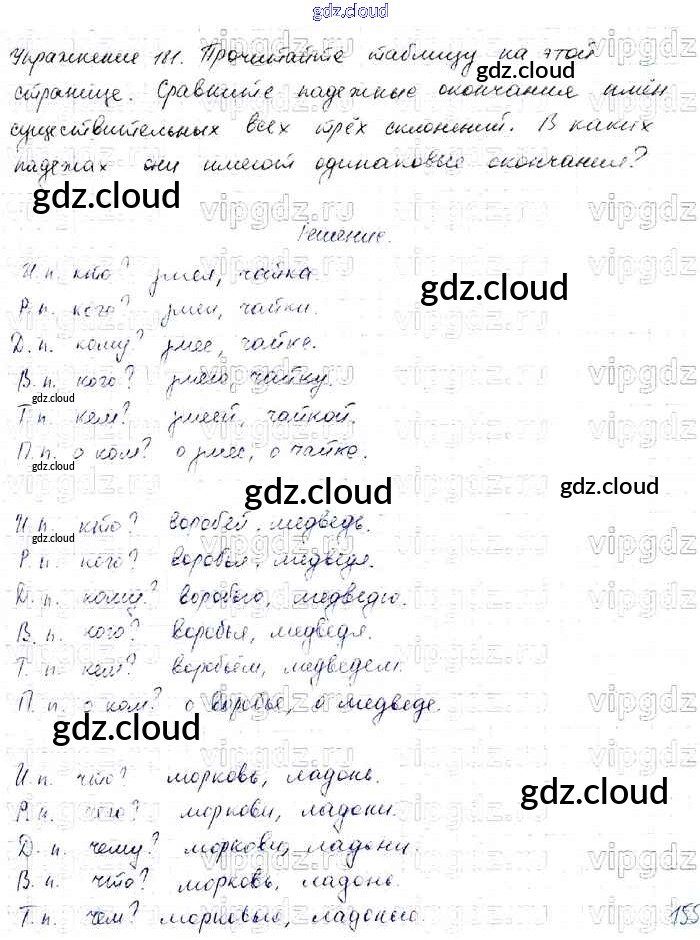 gdz.cloud
Упражнение 181. Прочитайте таблицу на этой
gdz.cloud
странице. Сравните падежные окончания имён
существительных всех трёх склонений. В каких
gdz.cloud
падежах они имеют одинаковые окончания?
gdz.cloud
vipgdz.ru vipgdz.ru vipgdz
Решение.
И.п. кто? змея, чайка.
gdz.cloud
Р.п. кого? змеи, чайки.
Д.п. кому? змее, чайке.
В.п. кого? змею, чайку.
gdz.cloud
Т.п. кем? змеей, чайкой.
П.п. о ком? о змее, о чайке.
gdz.cloud
gdz.cloud
gdz.cloud
И.п. кто? воробей, медведь.
gdz.cloud
Р.п. кого? воробья, медведя.
Д.п. кому? воробью, медведю.
В.п. кого? воробья, медведя.
Т.п. кем? воробьём, медведем.
П.п. о ком? о воробье, о медведе.
gdz.cloud
И.п. что? морковь, ладонь.
gdz.cloud
Р.п. чего? моркови, ладони.
Д.п. чему? моркови, ладони.
В.п. что? морковь, ладонь.
Т.п. чем? морковью, ладонью.
155